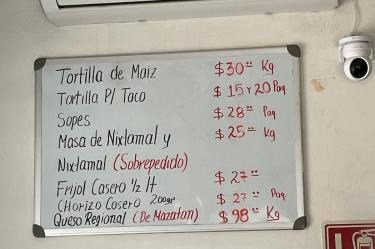 Tortilla de Maiz $30.00 Kg
Tortilla P/ Taco $15 y 20 Paq.
Sopes $28.00 Paq.
Masa de Nixtamal y $25.00 Kg
Nixtamal (Sobrepedido)
Frijol Casero ½ lt $27.00
Chorizo Casero 200gr $27.00 Paq.
Queso Regional (De Mazatan) $98.00 Kg